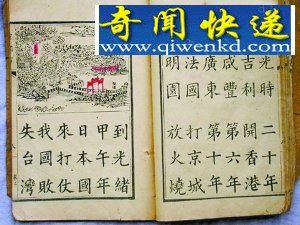 奇闻快递
www.qiwenkd.com
光時二十年
吉利開香港
咸豐第六年
廣東第十年
法國打京城
明園放火燒
到光緒
甲午年
日本國
來打仗
我國敗
失台灣